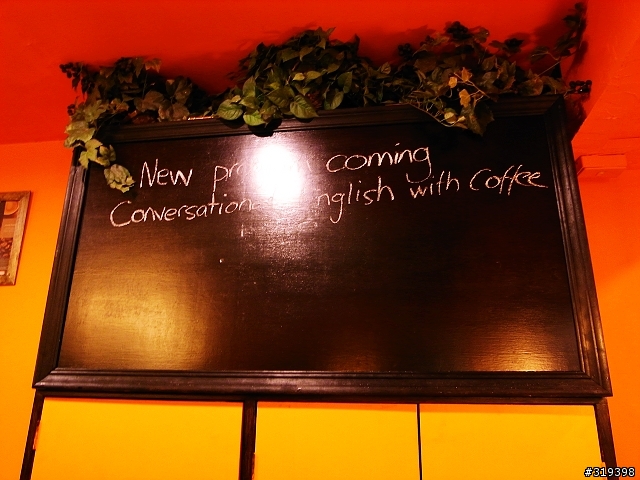 New coming
Conversational English with Coffee
#319398